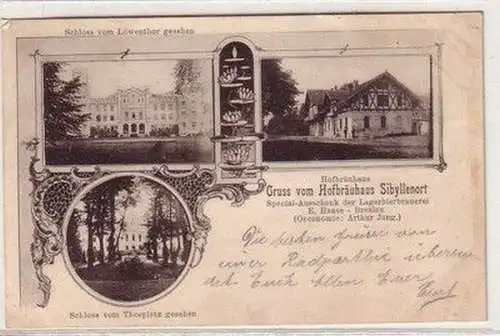 Schloss vom Löwenthor gesehen
Hofbräuhaus
Gruss vom Hofbräuhaus Sibyllenort
Special-Ausschank der Lagerbierbrauerei
E. Haase - Breslau
(Oeconome: Arthur Jung.)
Die besten Grüsse von
einer Radparthie übersen-
det Euch allen Euer
Curt
Schloss vom Theeplatz gesehen